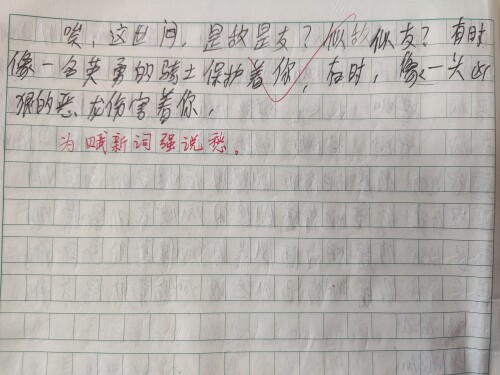 唉，这世间，是敌是友？似敌似友？有时
像一名英勇的骑士保护着你，有时，像一头凶
狠的恶龙伤害着你，
为赋新词强说愁。